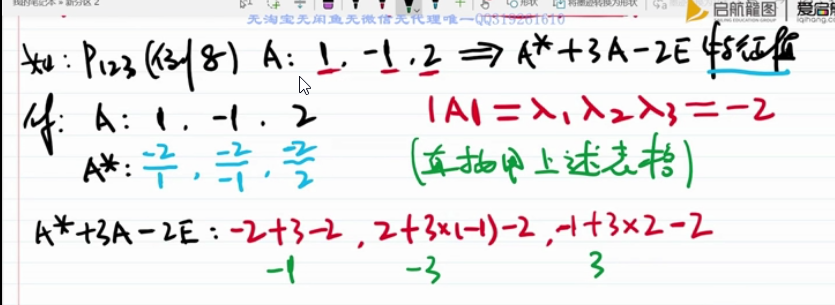 我的笔记本 » 新分区 2
无淘宝无闲鱼无微信无代理唯一QQ319261610
启航龍图 爱启航
如: P₁₂₃ (例8) A: 1, -1, 2 ⟹ A*+3A-2E 特征值
解: A: 1, -1, 2 |A| = λ₁λ₂λ₃ = -2
A*: -2/1, -2/-1, -2/2 (直接用上述表格)
A*+3A-2E: -2+3-2, 2+3×(-1)-2, -1+3×2-2
-1 -3 3